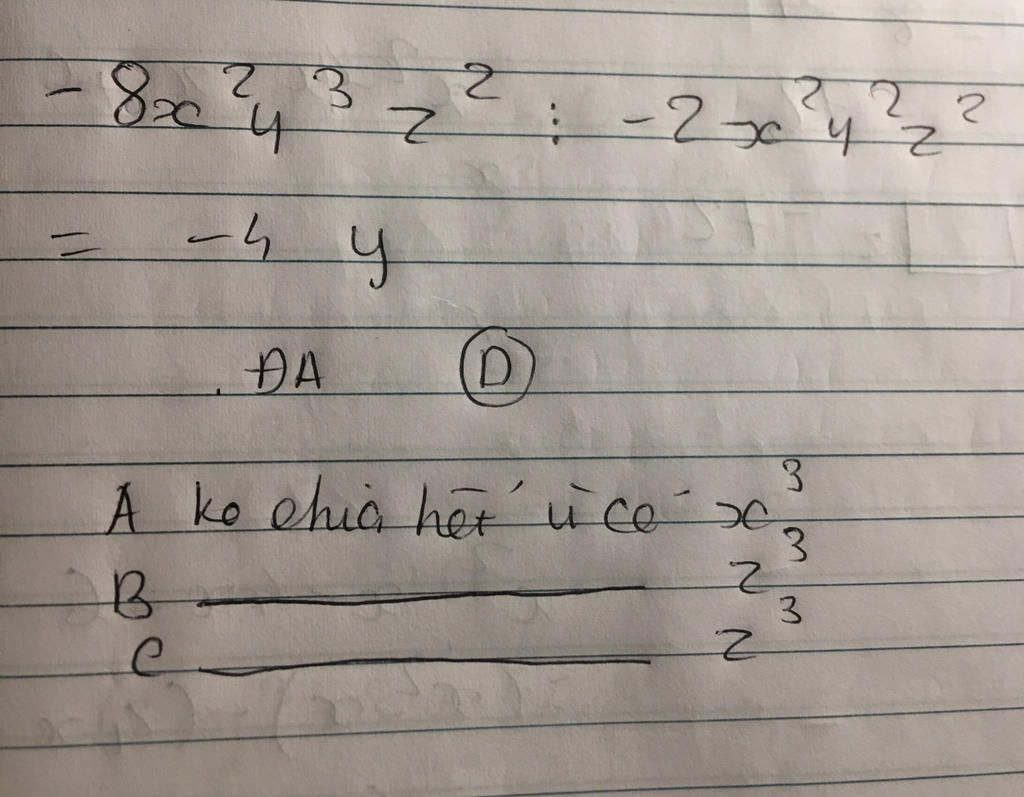 - 8x²y³z² : -2x²y²z²
= -4 y
. ĐA D
A ko chia hết vì có x³
B ——— z³
C ——— z³